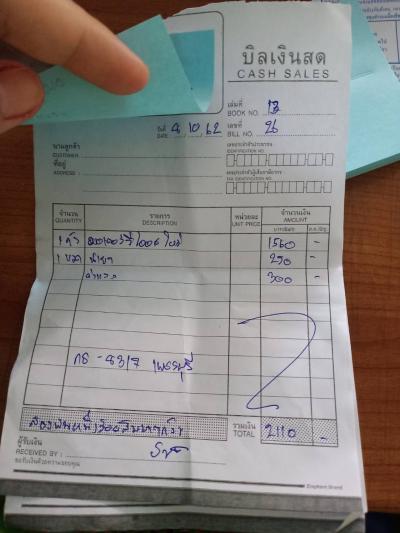 บิลเงินสด
CASH SALES
เล่มที่ BOOK NO. 13
วันที่ DATE 9/10/62
เลขที่ BILL NO. 26
นามลูกค้า
CUSTOMER
ที่อยู่
ADDRESS
เลขประจำตัวประชาชน
IDENTIFICATION NO.
เลขประจำตัวผู้เสียภาษีอากร
TAX IDENTIFICATION NO.
จำนวน รายการ หน่วยละ จำนวนเงิน
QUANTITY DESCRIPTION UNIT PRICE AMOUNT
1 ตัว แบตเตอรี่ ใหม่ 1560 -
1 ขวด น้ำยา 250 -
ค่าแรง 300 -
กธ - 83/7 เพชรบุรี
สองพันหนึ่งร้อยสิบบาทถ้วน รวมเงิน TOTAL 2110 -
ผู้รับเงิน
RECEIVED BY :
ขอรับเงินด้วยความขอบคุณ
Elephant Brand